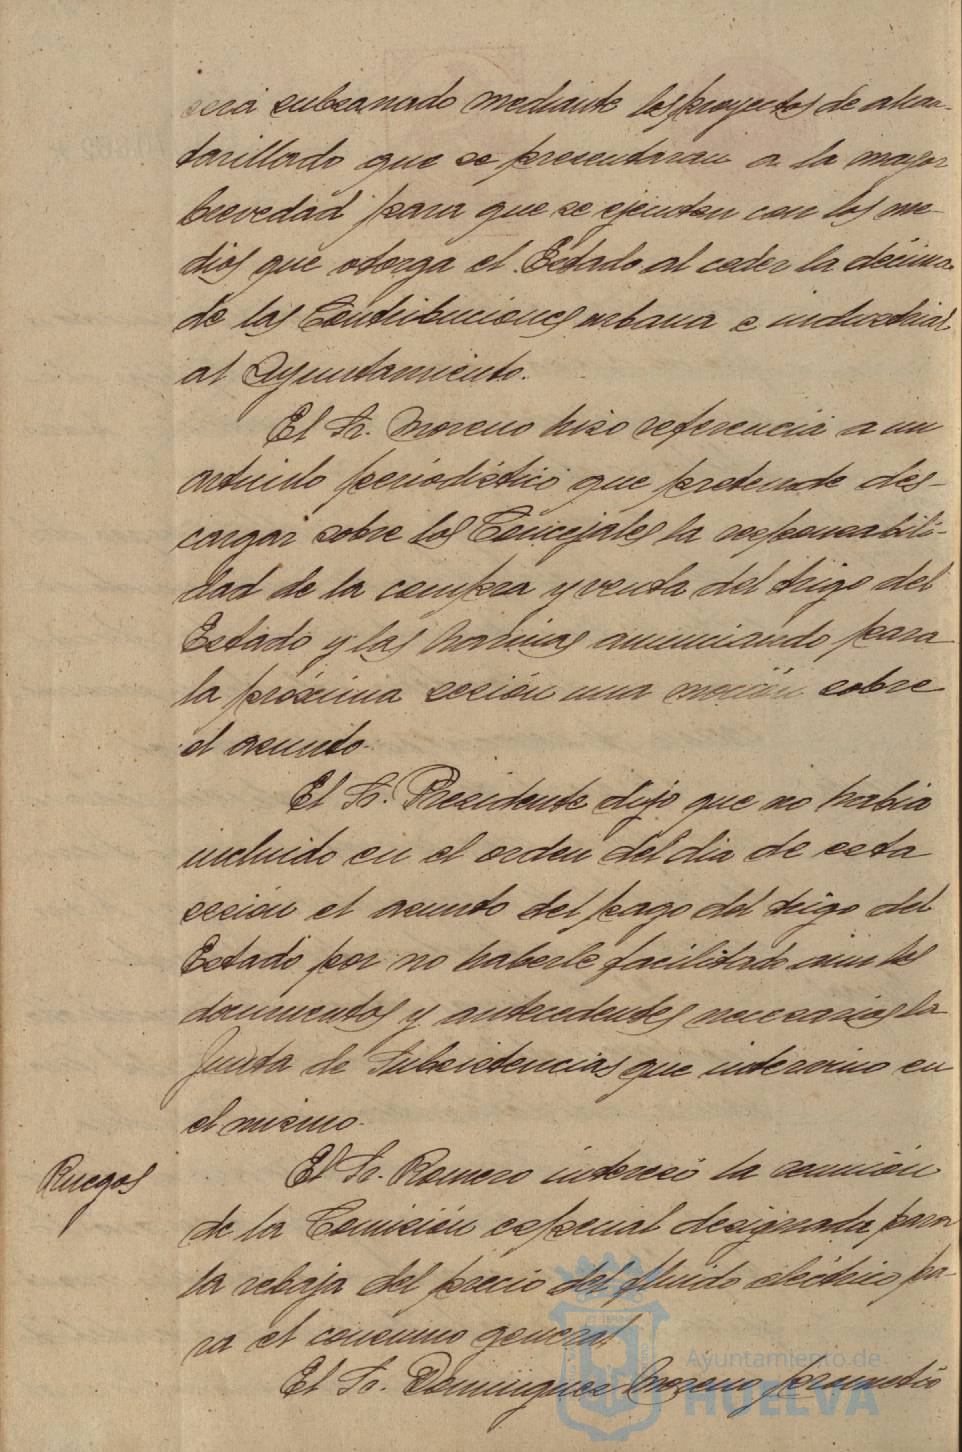 será subsanado mediante los proyectos de alcan-
tarillado que se presentaran a la mayor
brevedad para que se ejecuten con los me-
dios que otorga el Estado al ceder la décima
de las Contribuciones urbana e industrial
al Ayuntamiento.
El Sr. Moreno hizo referencia a un
artículo periodístico que pretende des-
cargar sobre los Concejales la responsabili-
dad de la compra y venta del trigo del
Estado y las harinas anunciando para
la próxima sesión una moción sobre
el asunto.
El Sr. Presidente dijo que no habia
incluido en el orden del dia de esta
sesión el asunto del pago del trigo del
Estado por no haberle facilitado aun los
documentos y antecedentes necesarios la
Junta de Subsistencias que intervino en
el mismo.
Ruegos
El Sr. Romero interesó la reunión
de la Comisión especial designada para
la rebaja del precio del fluido eléctrico pa-
ra el consumo general
El Sr. Dominguez Moreno prometió
Ayuntamiento de
HUELVA